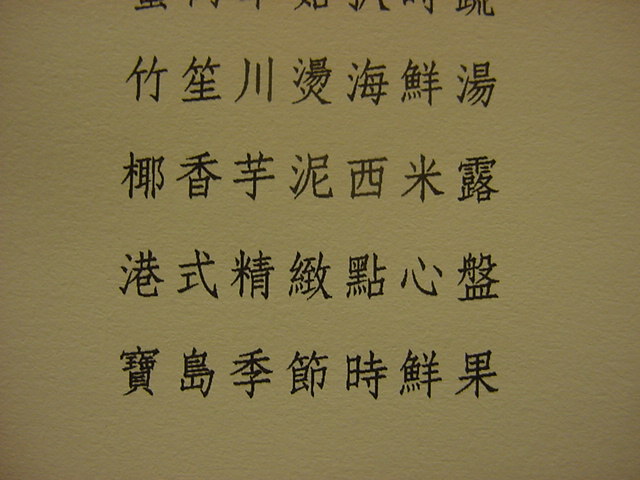 時蔬
竹笙川燙海鮮湯
椰香芋泥西米露
港式精緻點心盤
寶島季節時鮮果